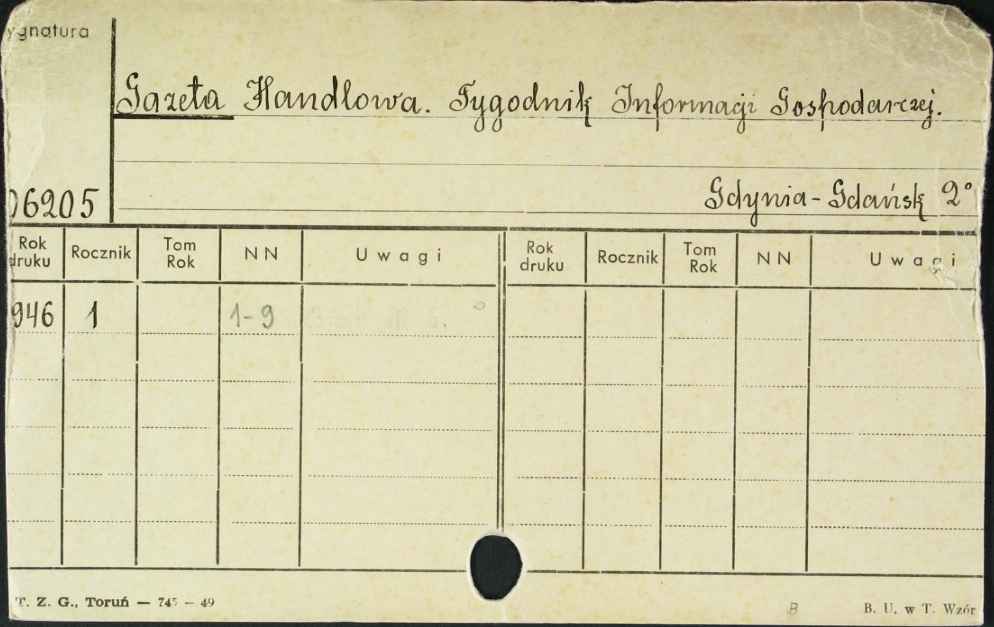 ygnatura
Gazeta Handlowa. Tygodnik Informacji Gospodarczej.
06205
Gdynia-Gdańsk 2°
Rok druku Rocznik Tom Rok NN Uwagi Rok druku Rocznik Tom Rok NN Uwagi
946 1 1-9
T. Z. G., Toruń — 745 — 49
B
B. U. w T. Wzór